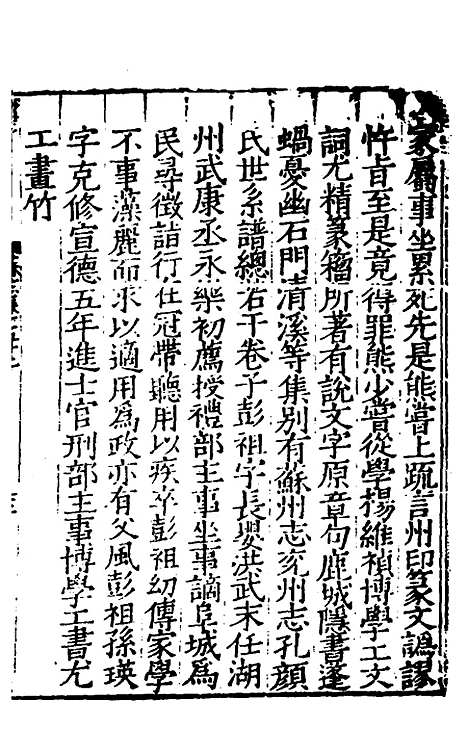 家屬事坐累死先是熊嘗上疏言州印篆文譌謬
忤旨至是竟得罪熊少嘗從學揚維禎博學工文
詞尤精篆籀所著有說文字原章句鹿城隱書蓬
蝸憂幽石門清溪等集別有蘇州志兖州志孔顔
氏世系譜總若干卷子彭祖字長嬰洪武末任湖
州武康丞永樂初薦授禮部主事坐事謫阜城爲
民尋徵詣行在冠帶聽用以疾卒彭祖幼傳家學
不事藻麗而求以適用爲政亦有父風彭祖孫瑛
字克修宣德五年進士官刑部主事博學工書尤
工畫竹